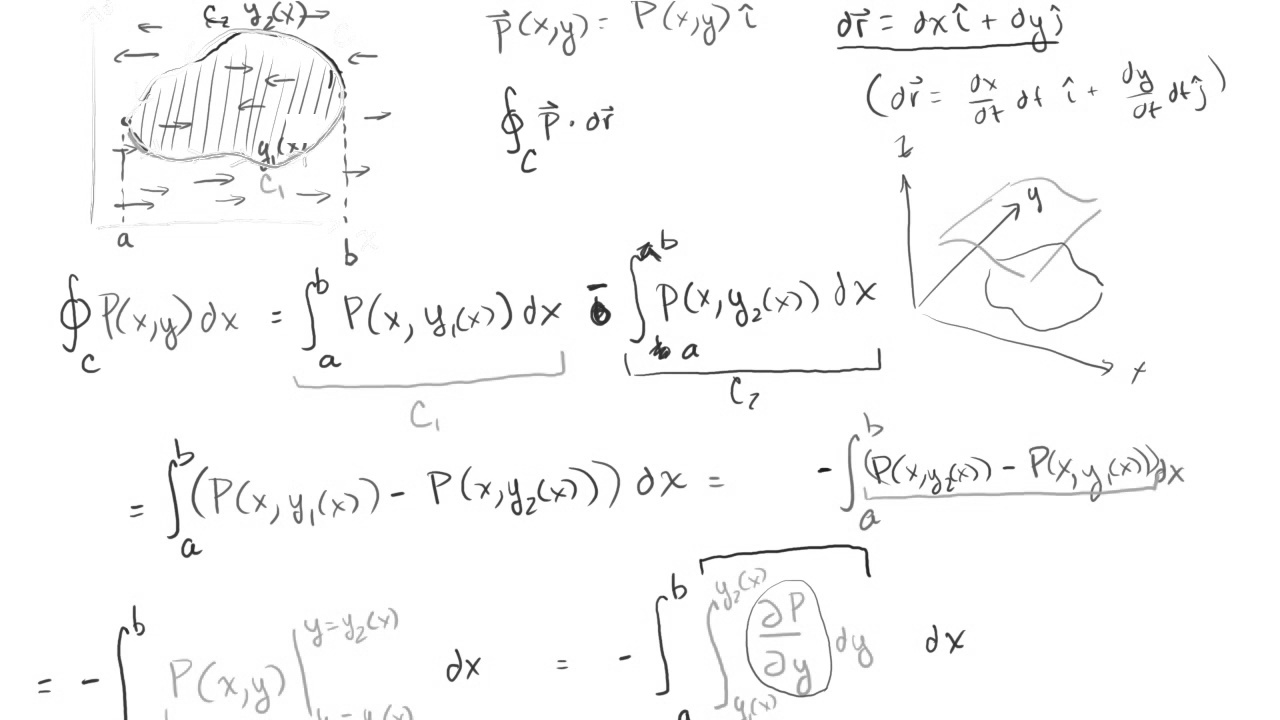 C₂ y₂(x)
y₁(x)
C₁
a b
P⃗(x,y) = P(x,y) î
dr⃗ = dx î + dy ĵ
(dr⃗ = dx/dt dt î + dy/dt dt ĵ)
∮_C P⃗ · dr⃗
z
y
x
∮_C P(x,y) dx = ∫_a^b P(x, y₁(x)) dx - ∫_a^b P(x, y₂(x)) dx
C₁ C₂
= ∫_a^b (P(x, y₁(x)) - P(x, y₂(x))) dx = - ∫_a^b (P(x, y₂(x)) - P(x, y₁(x))) dx
= - ∫^b P(x,y) |^{y=y₂(x)} dx = - ∫_a^b ∫_{y₁(x)}^{y₂(x)} ∂P/∂y dy dx